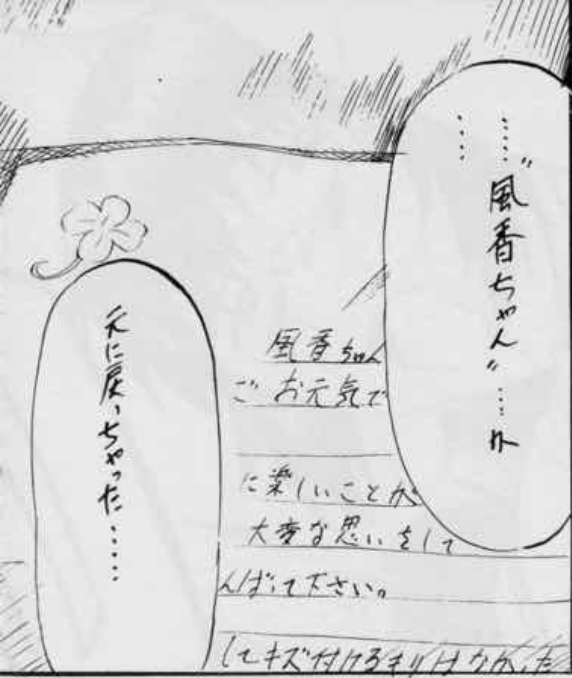 ……"風香ちゃん"……か
……
元に戻っちゃった……
風香ちゃん
ご お元気で
に楽しいことが
大変な思いをして
んばって下さい。
してキズ付けるキリはなかった